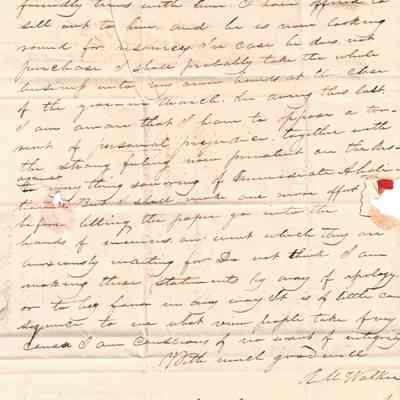 friendly terms with him. I have offered to
sell out to him and he is now looking
round for money. In case he does not
purchase I shall probably take the whole
business into my own hands at the close
of the year in March. In doing this last
I am aware that I have to oppose a tor-
rent of personal prejudice, together with
the strong feeling now prevalent on the
against every thing savoring of Immediate Abolition
But I shall make one more effort
before letting the paper go into the
hands of enemies an event which they are
anxiously waiting for Do not think I am
making these statements by way of apology
or to beg favor in any way It is of little con
sequence to me what view people take of my
course I am conscious of no want of integrity
With much good will
Walker